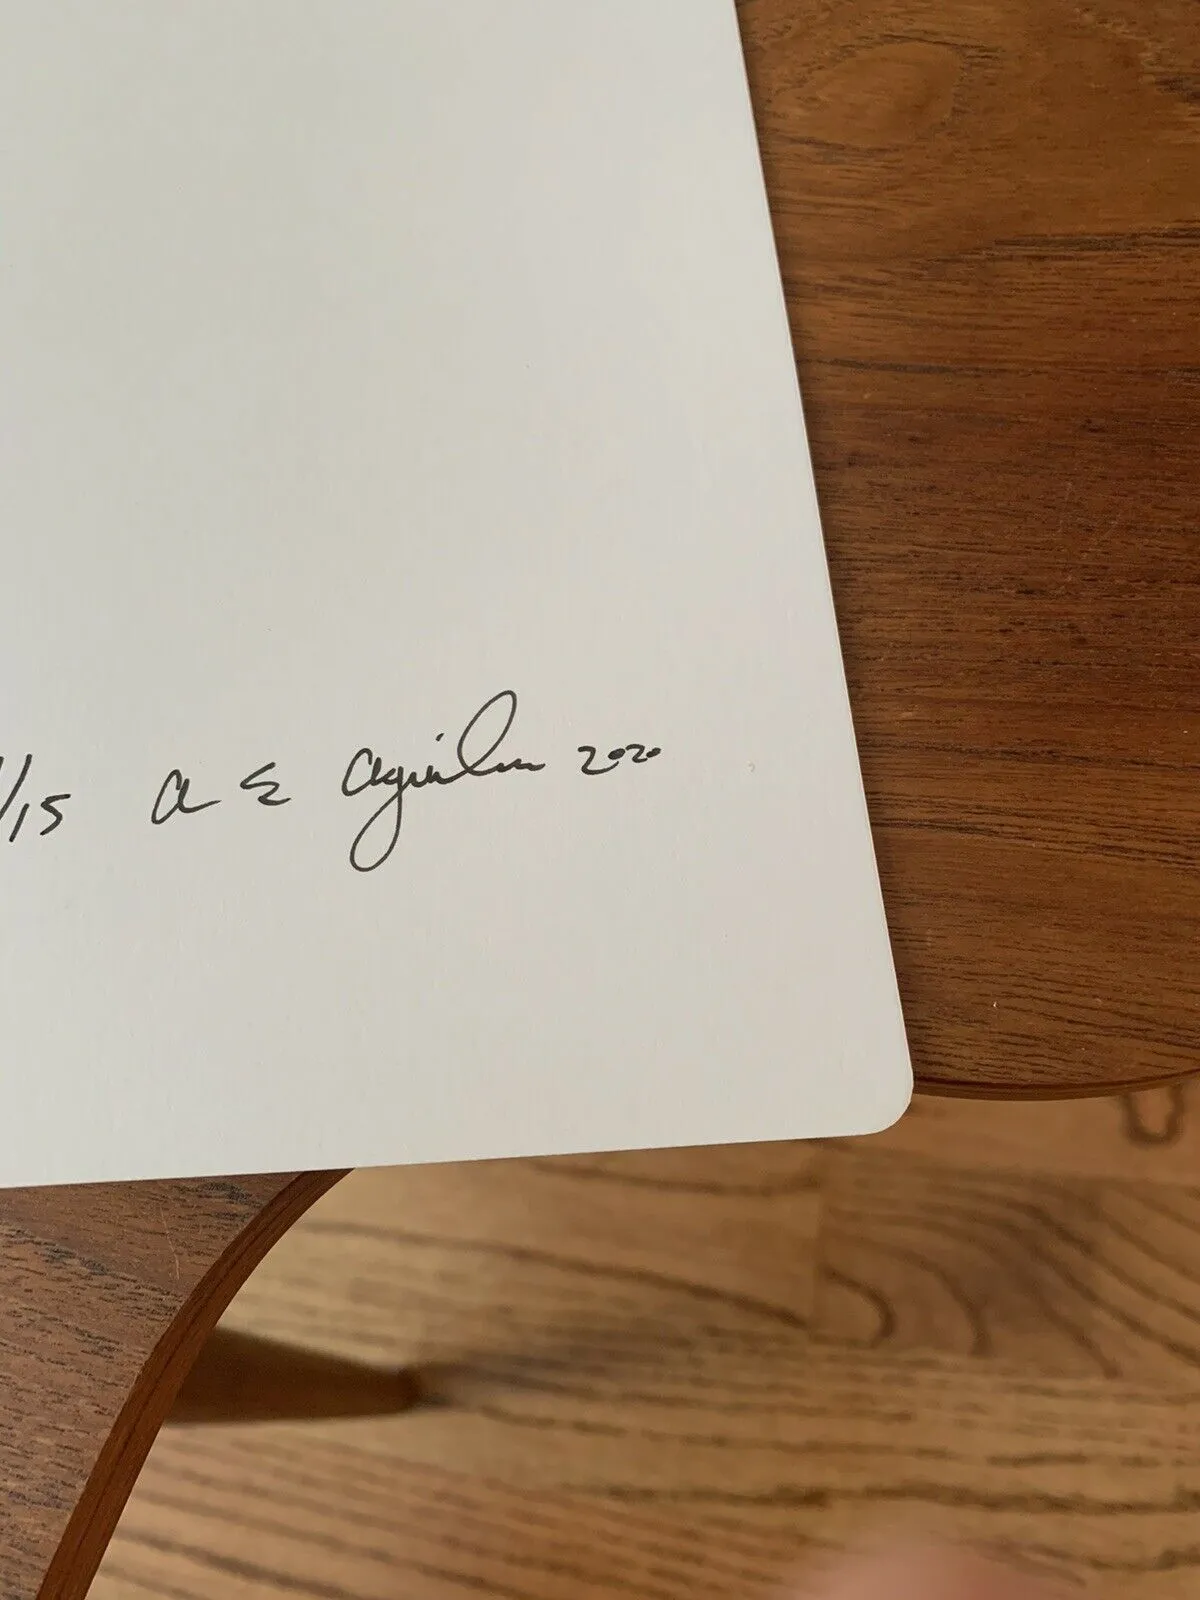 /15 a E Aguilar 2020